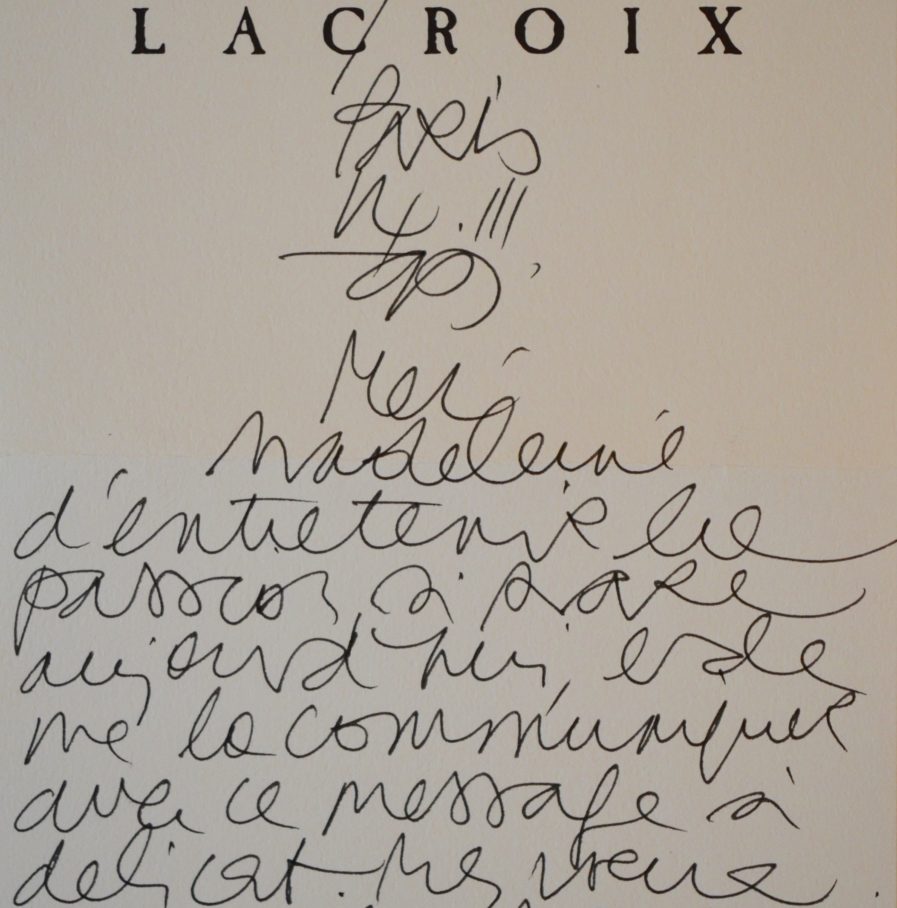 LACROIX
Paris
Merci
Madeleine
d'entretenir
passion, si rare
aujourd'hui, et de
me la communiquer
avec ce message si
délicat.